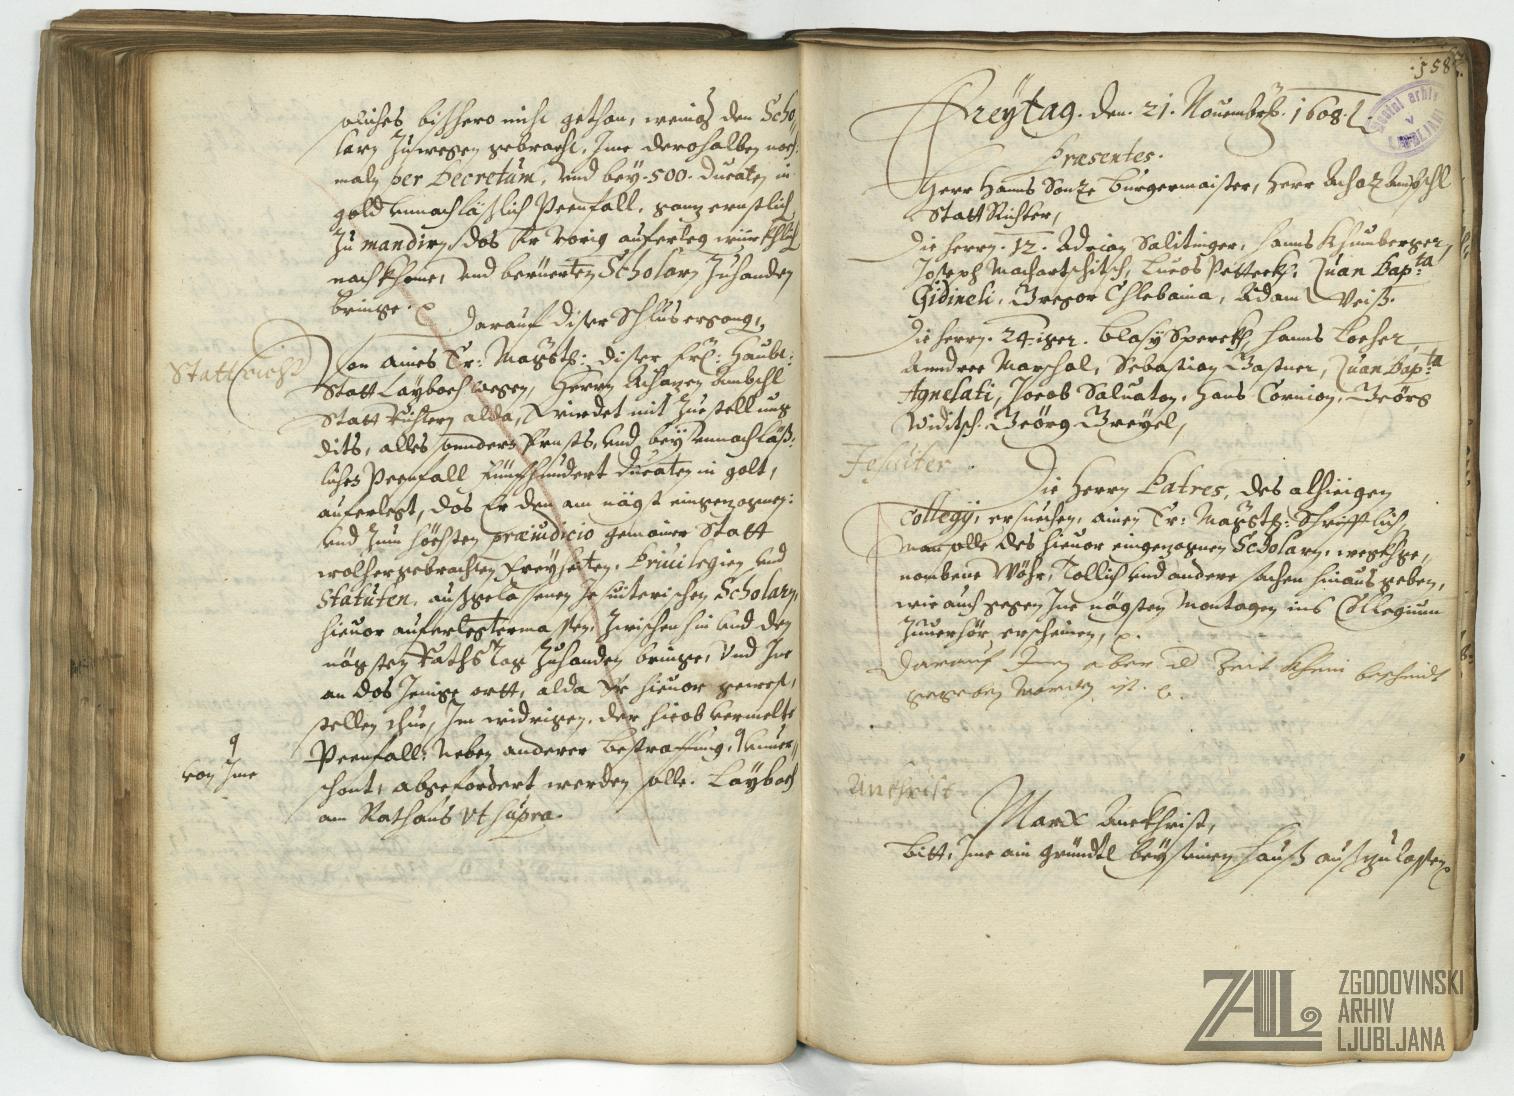 solches bisshero nicht gethan, weniger den Scho-
larn Zuwegen gebracht. Ime derohalben noch-
maln per Decretum, vnd bey .500. Ducaten in
gold vnnachläßlich Peenfall, ganz ernstlich
Zu mandirn, das Er vorig auferleg würkhlich
nachkhome, vnd beruerten Scholarn Zuhanden
bringe.
Darauf diser Schlus ergangen
Stattricht
Von aines Er: Magist: diser Frl: Haubt:
Statt Laybach wegen, Herrn Achazen Ambschl
Statt Richtern alda, Wirdet mit Zuestellung
dits, alles sonders Ernsts, vnd bey vnnachläß:
lichen Peenfall Fünfhundert Ducaten in golt,
auferlegt, das Er den am nägst eingezognen:
vnd zum höchsten præiudicio gemainer Statt
wolhergebrachten Freyheiten, Priuilegien vnd
Statuten, außgelassenen Jesuiterischen Scholarn,
hieuor auferlegtermassen, Zwischen hin vnd den
nägsten Raths Tag Zuhanden bringe, Vnd Ine
an das Jenige ortt, alda Er hieuor gewest,
stellen thue, Im widrigen, der hieob vermelte
Peenfall, Neben anderer bestraffung, vnuer-
von Ime
schont, abgefordert werden solle. Laybach
am Rathaus vt supra.
558
Freytag. den. 21. Nouembris. 1608.
Præsentes.
Herr Hanns Sonze Burgermaister, Herr Achaz Ambschl
Statt Richter,
Die herrn .12. Adrian Salitinger, Hanns Khunberger,
Joseph Machartschitsch, Lucas Petteckh, Juan Bap:ta
Gidineli, Gregor Chlebaina, Adam Weiß.
Die herrn .24.iger. Blasy Spereckh, Hanns Locher,
Andree Marschal, Sebastian Gastner, Juan Bap:ta
Agnelati, Jacob Saluator, Hans Cornion, Georg
Widitsch. Geörg Greysl,
Jesuiter
Die Herrn Patres, des alhieigen
Collegij, ersuechen, ainen Er: Magist: Schrifftlich,
man solle des hieuor eingezognen Scholarn, wegkhge-
nombene Wöhr, Tollich vnd andere sachen hinaus geben,
wie auch gegen Ine nägsten Montagen ins Collegium
Zuuerhör erscheinen,
Darauf Inen aber Zeit khein bescheidt
gegeben worden ist.
Antkhrist
Marx Antkhrist,
Bitt, Ime ain gründtl bey seinem Hauß außzulassen
ZAL
ZGODOVINSKI
ARHIV
LJUBLJANA